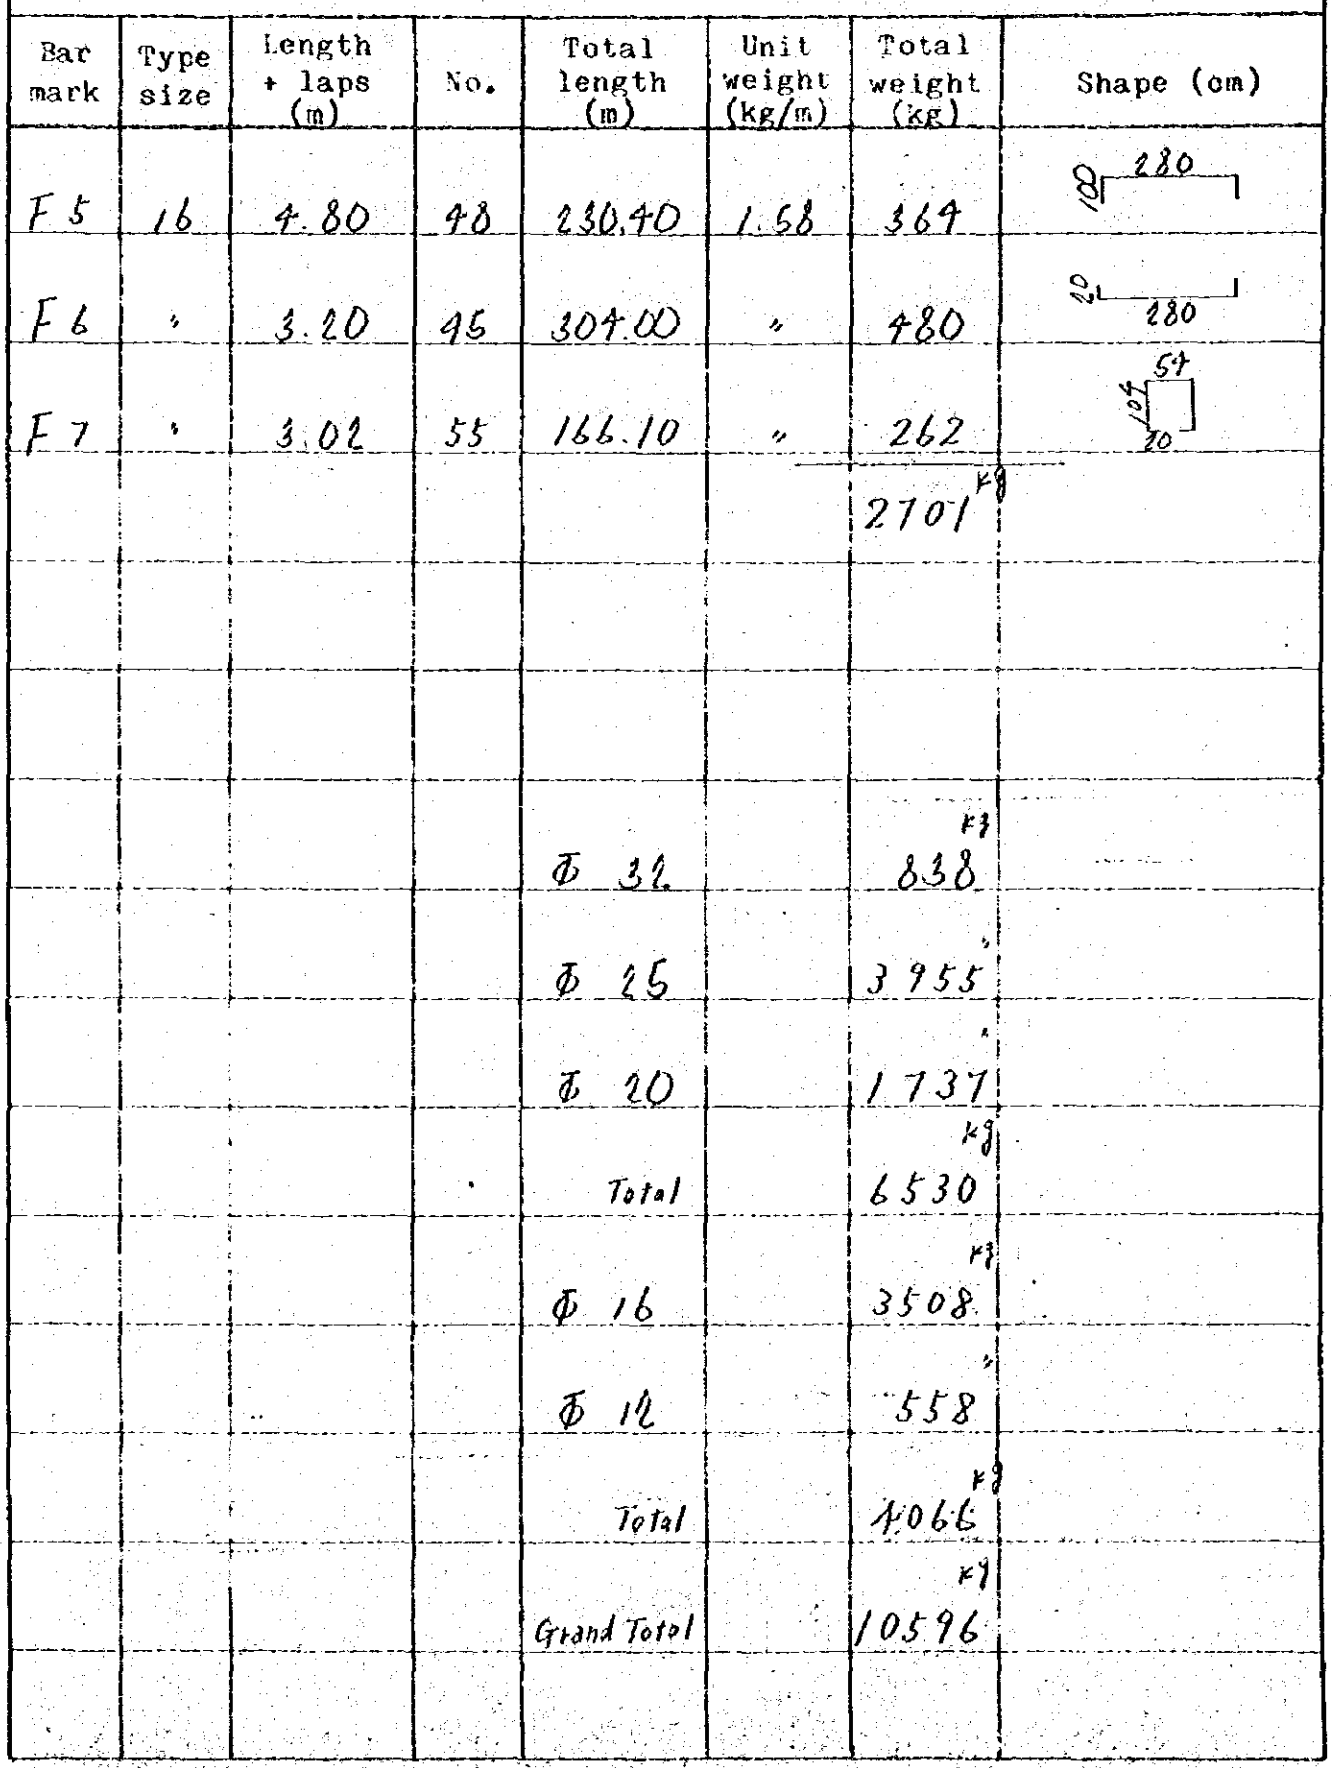 Bar mark | Type size | Length + laps (m) | No. | Total length (m) | Unit weight (kg/m) | Total weight (kg) | Shape (cm)
F 5 | 16 | 4.80 | 48 | 230.40 | 1.58 | 364 | 100 280
F 6 | " | 3.20 | 95 | 304.00 | " | 480 | 20 280
F 7 | " | 3.02 | 55 | 166.10 | " | 262 | 54 104 20
2701 kg
Φ 32 838 kg
Φ 25 3955 "
Φ 20 1737 "
Total 6530 kg
Φ 16 3508 kg
Φ 12 558 "
Total 4066 kg
Grand Total 10596 kg